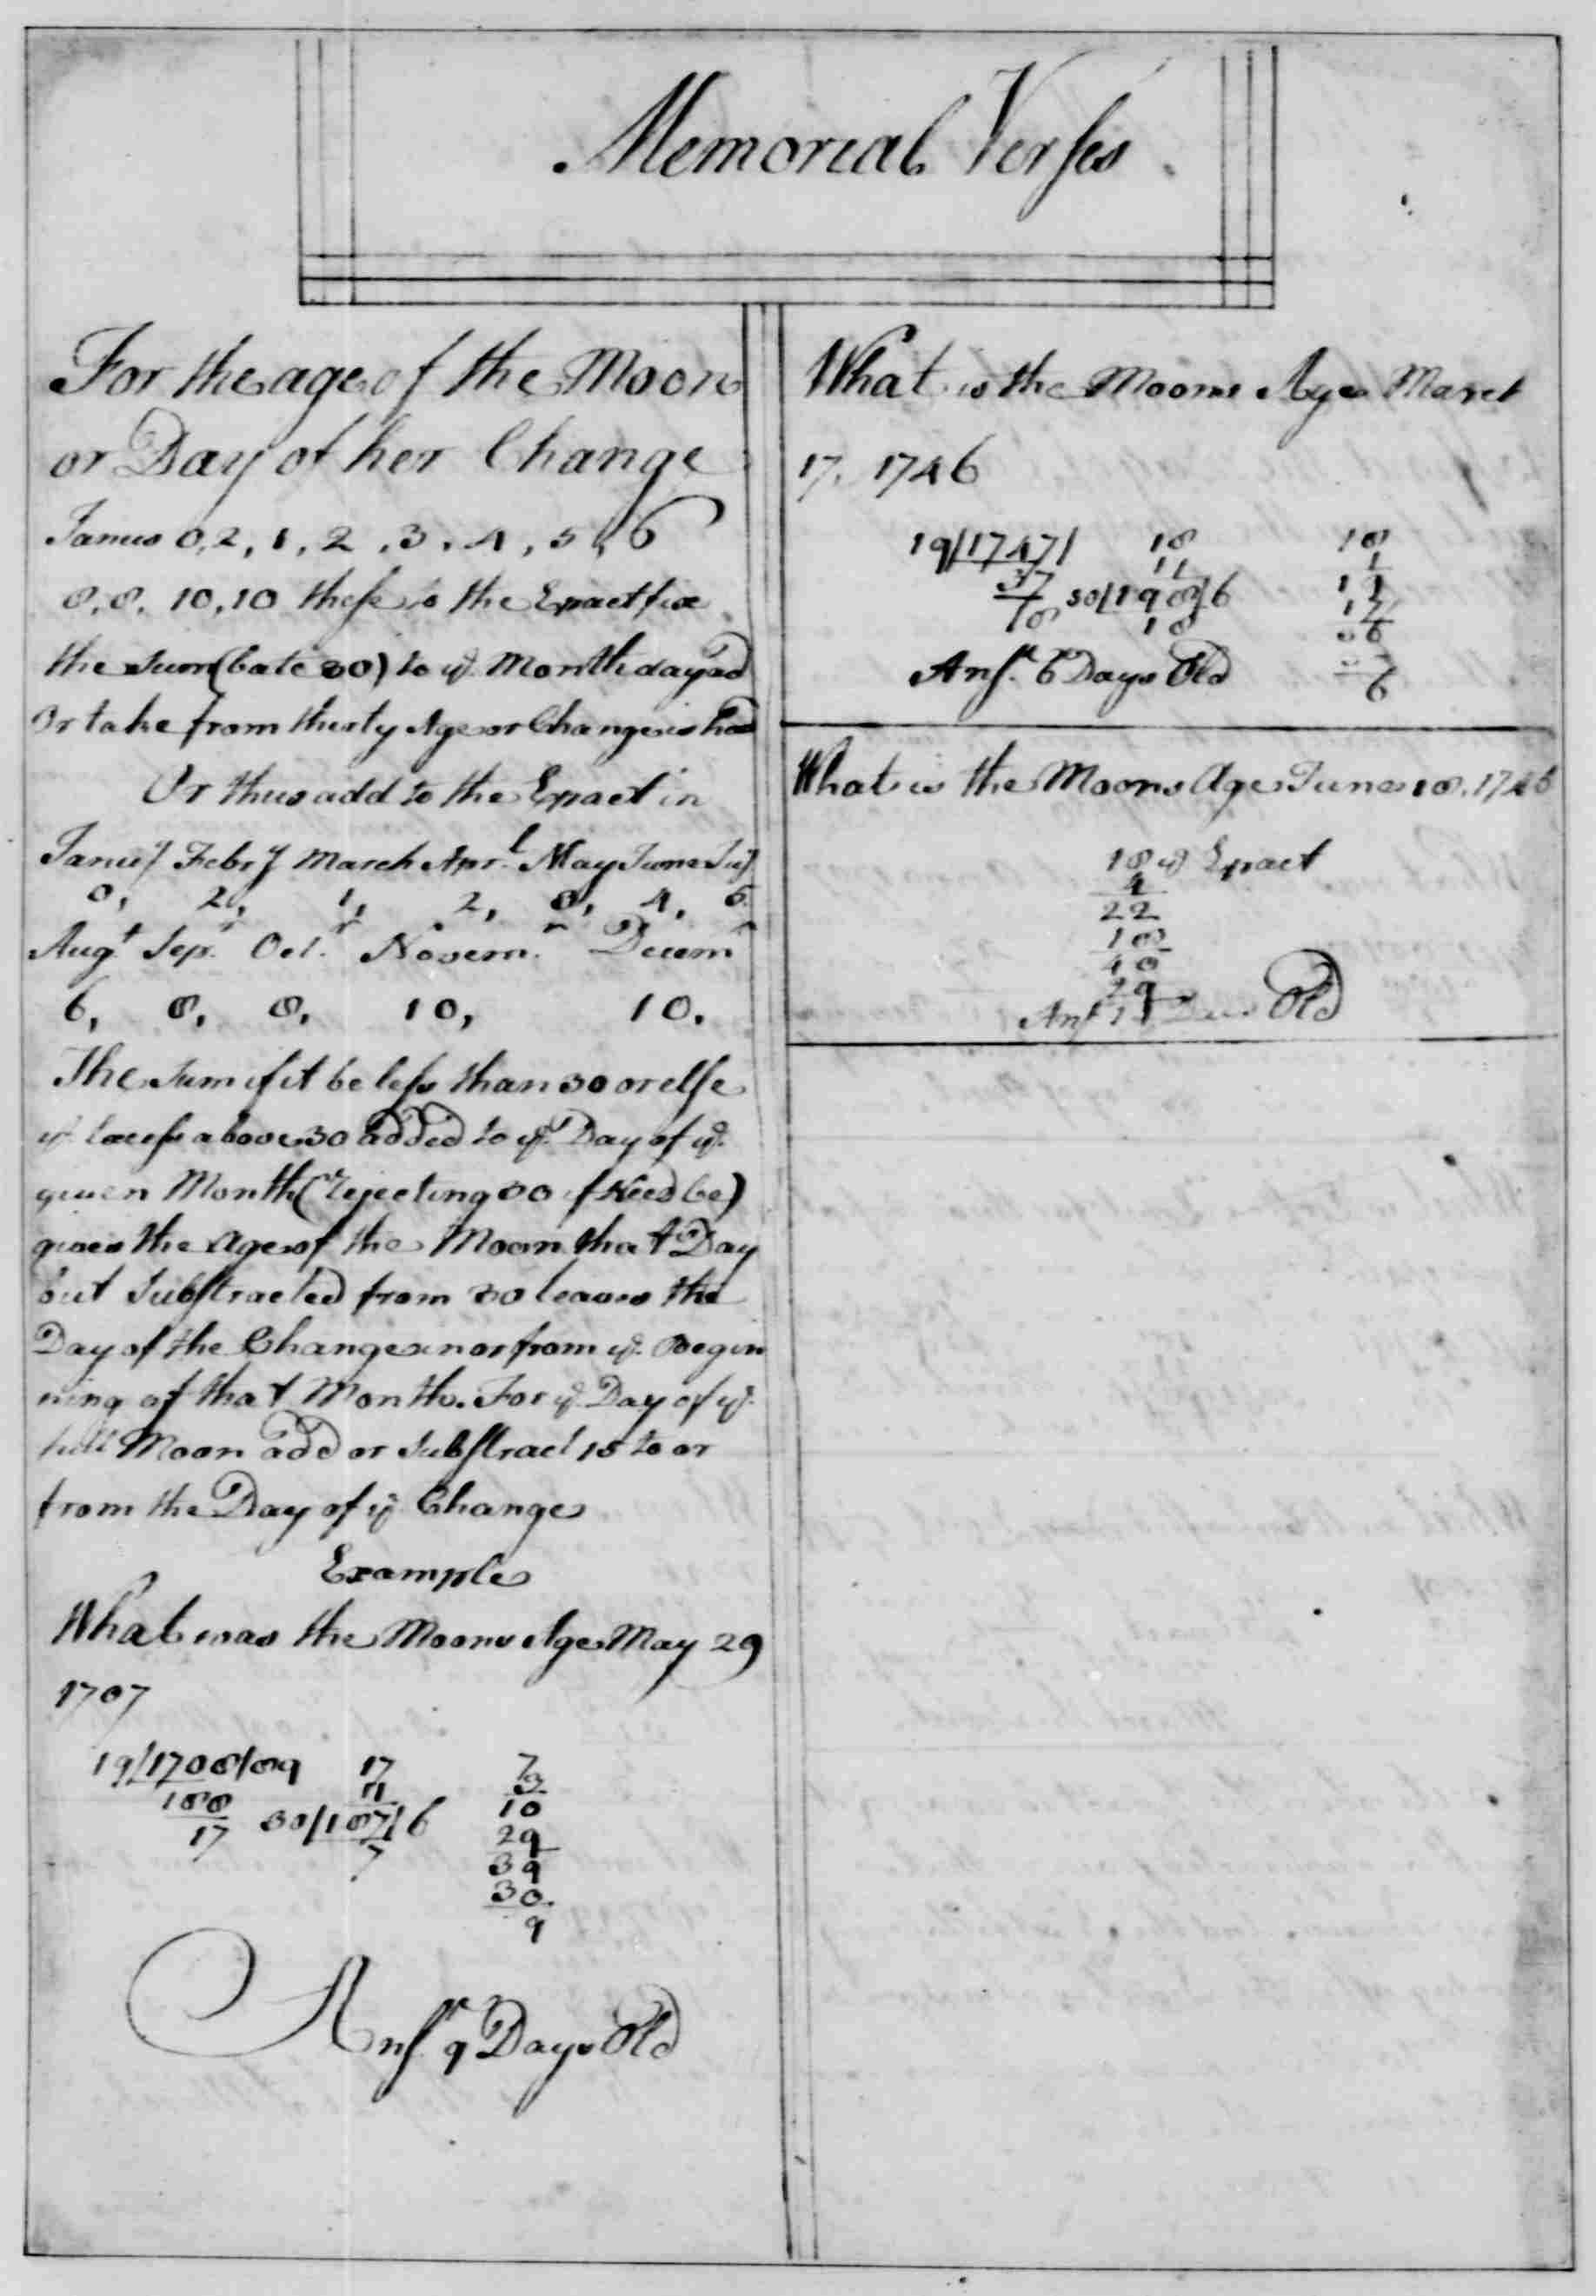 Memorial Verses
For the age of the Moon
or Day of her Change
Janus 0, 2, 1, 2, 3, 4, 5, 6
8, 8, 10, 10 these to the Epact fix
the Sum (bate 30) to ye. Month day add
Or take from thirty Age or Change is had
Or thus add to the Epact in
Januy Febry March Aprl. May June July
0, 2, 1, 2, 3, 4, 5.
Augt. Sepr. Octr. Novemr. Decemr
6, 8, 8, 10, 10.
The Sum if it be less than 30 or else
ye. Excess above 30 added to ye. Day of ye.
given Month (rejecting 30 if Need be)
gives the Age of the Moon that Day
but Substracted from 30 leaves the
Day of the Change in or from ye. Begin
ning of that Month. For ye. Day of ye.
full Moon add or Substract 15 to or
from the Day of ye Change
Example
What was the Moons Age May 29
1707
19/1708/89 17 7
188 11 3
17 30/187/6 10
7 29
39
30
9
Ansr. 9 Days Old
What is the Moons Age March
17, 1746
19/1747/ 18 18
37 11 1
18 30/198/6 19
18 17
36
6
Ansr. 6 Days Old
What is the Moons Age June 18, 1746
18 ye Epact
4
22
18
40
29
Ansr 11 Days Old